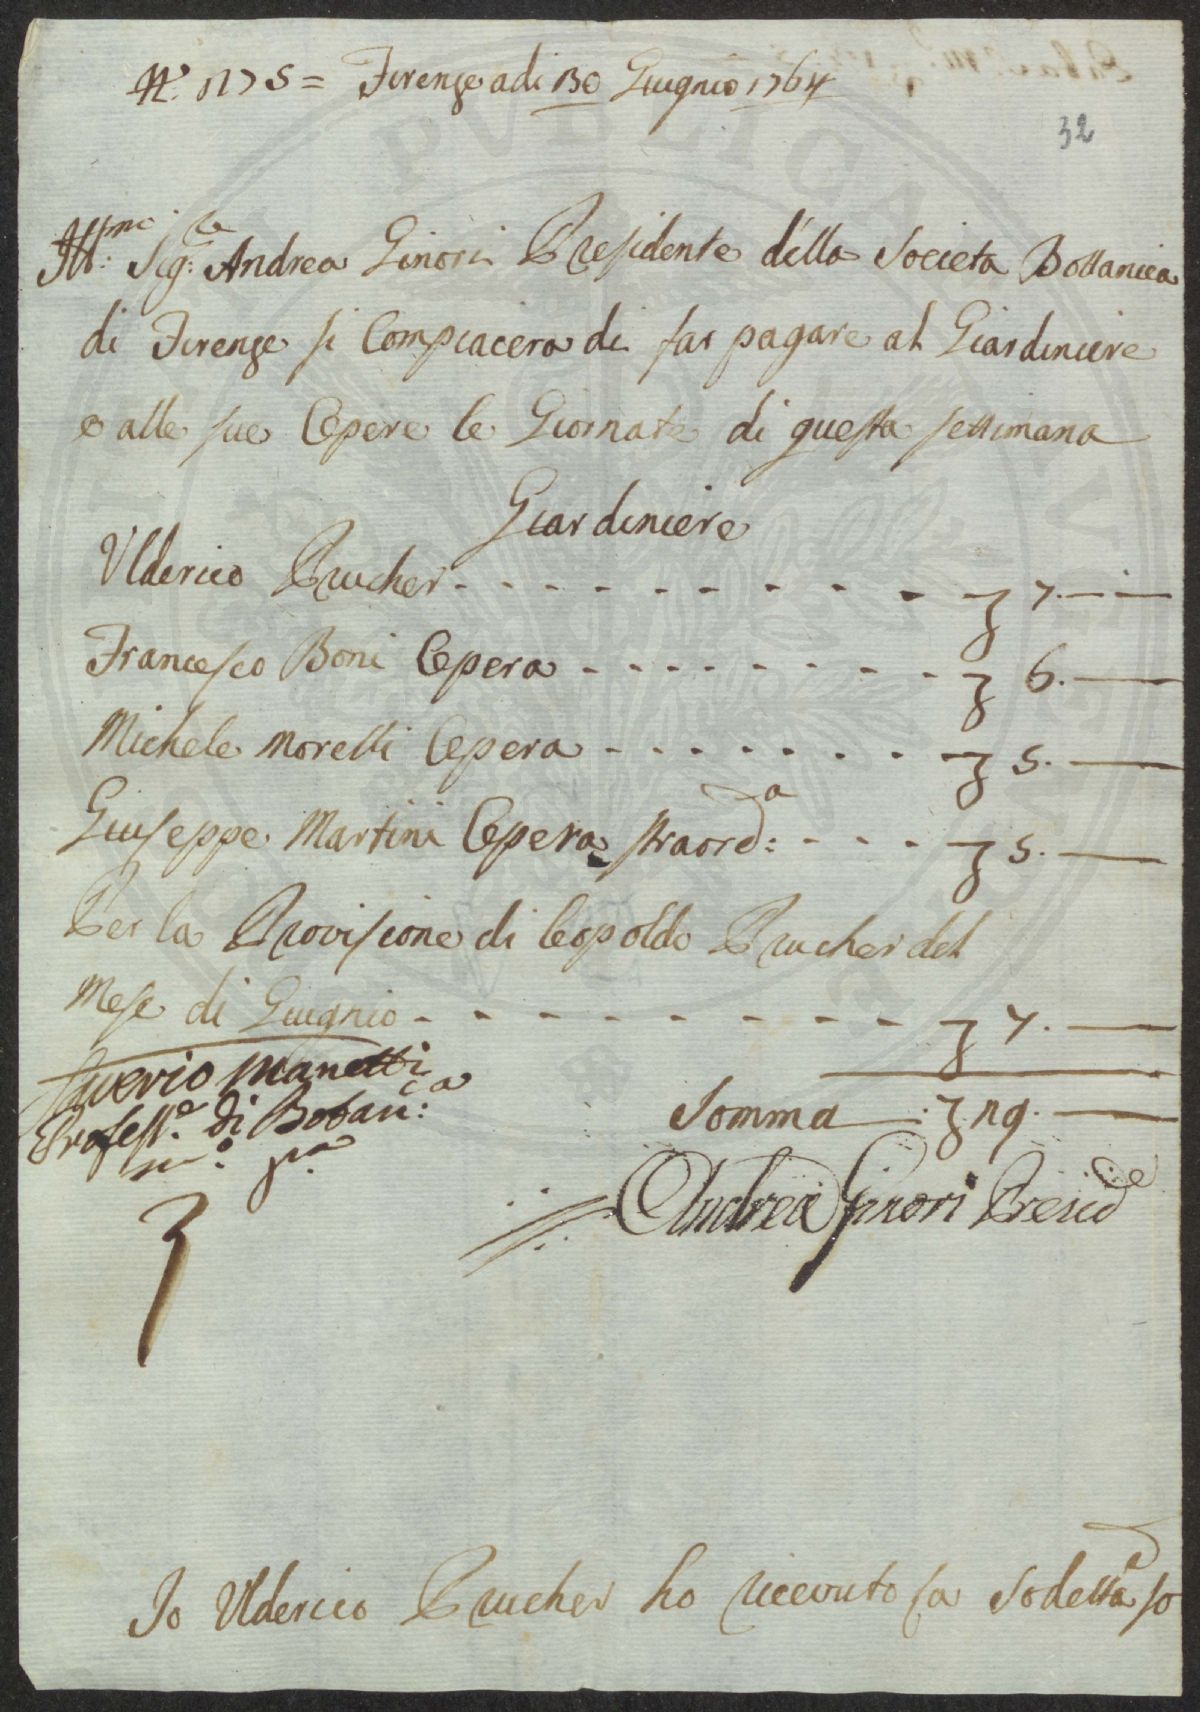 N.º 175 = Firenze adi 30 Giugnio 1764
32
Ill:mo Sig:re Andrea Ginori Presidente della Societa Bottanica
di Firenze si Compiacera di far pagare al Giardiniere
e alle sue Opere le Giornate di questa settimana
Giardiniere
Ulderico Prucher - - - - - - - - - - £ 7. —
Francesco Boni Opera - - - - - - - - £ 6. —
Michele Morelli Opera - - - - - - - £ 5. —
Giuseppe Martini Opera straord:a - - - £ 5. —
Per la Provisione di Leopoldo Prucher del
Mese di Giugnio - - - - - - - - - £ 7. —
Saverio Manetti
Profess.e di Botan:ca
m.o p.a
Somma — £ 29. —
Andrea Ginori Presid.e
Io Ulderico Prucher ho ricevuto la Sodetta so